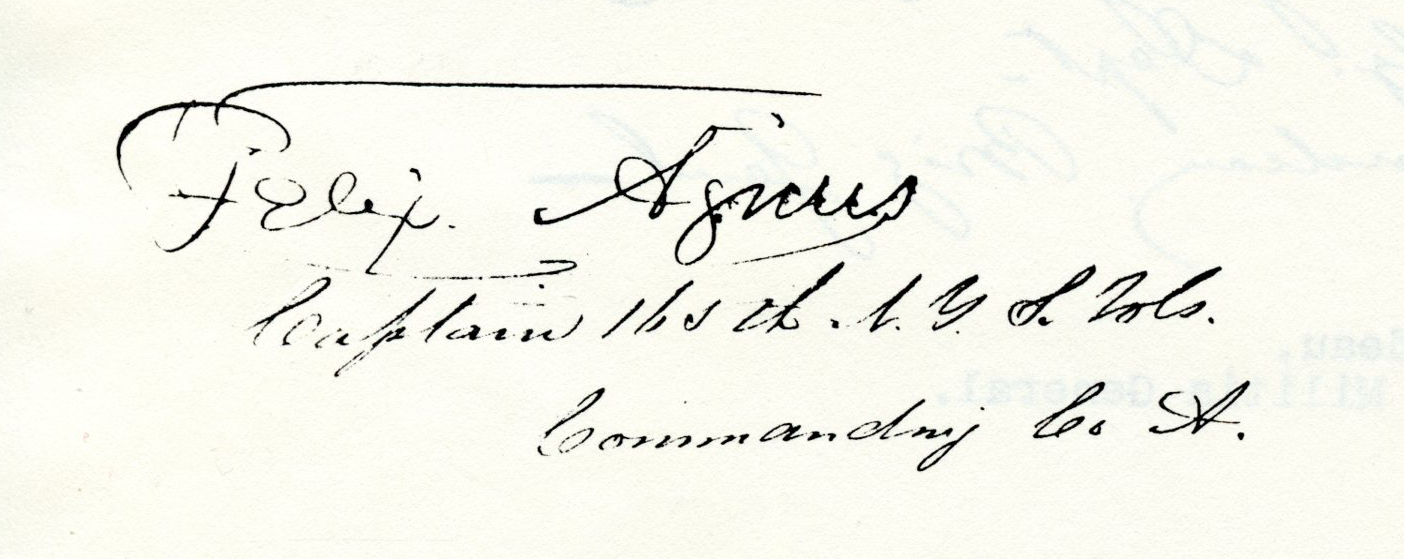 Felix. Agnus
Captain 165th N. Y. S. Vols.
Commanding Co A.